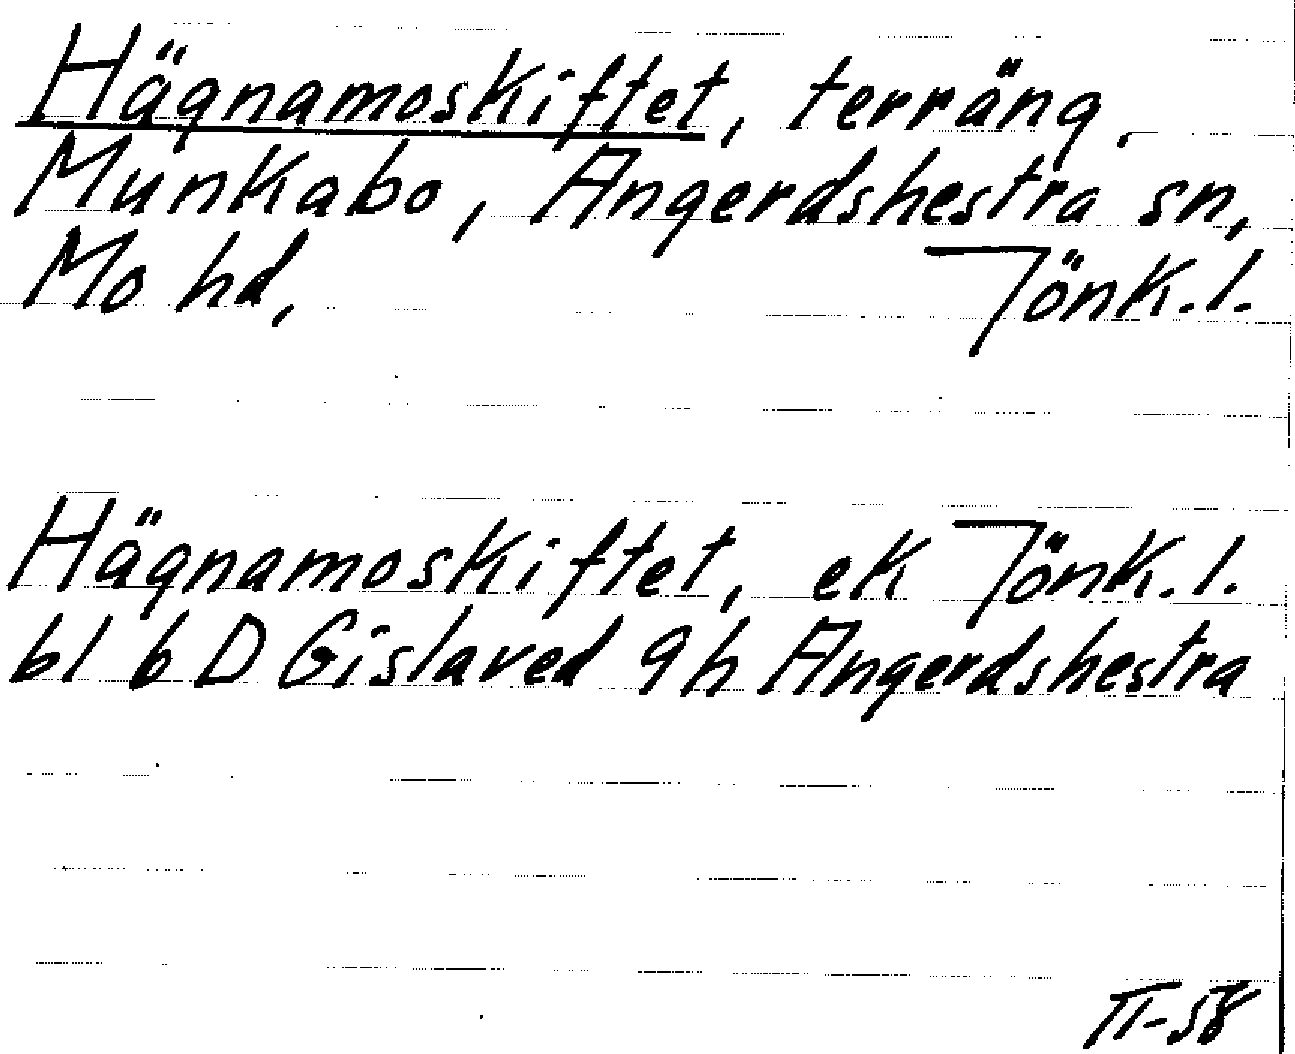 Hägnamoskiftet, terräng,
Munkabo, Angerdshestra sn,
Mo hd, Jönk.l.
Hägnamoskiftet, ek Jönk.l.
bl 6 D Gislaved 9h Angerdshestra
II-58